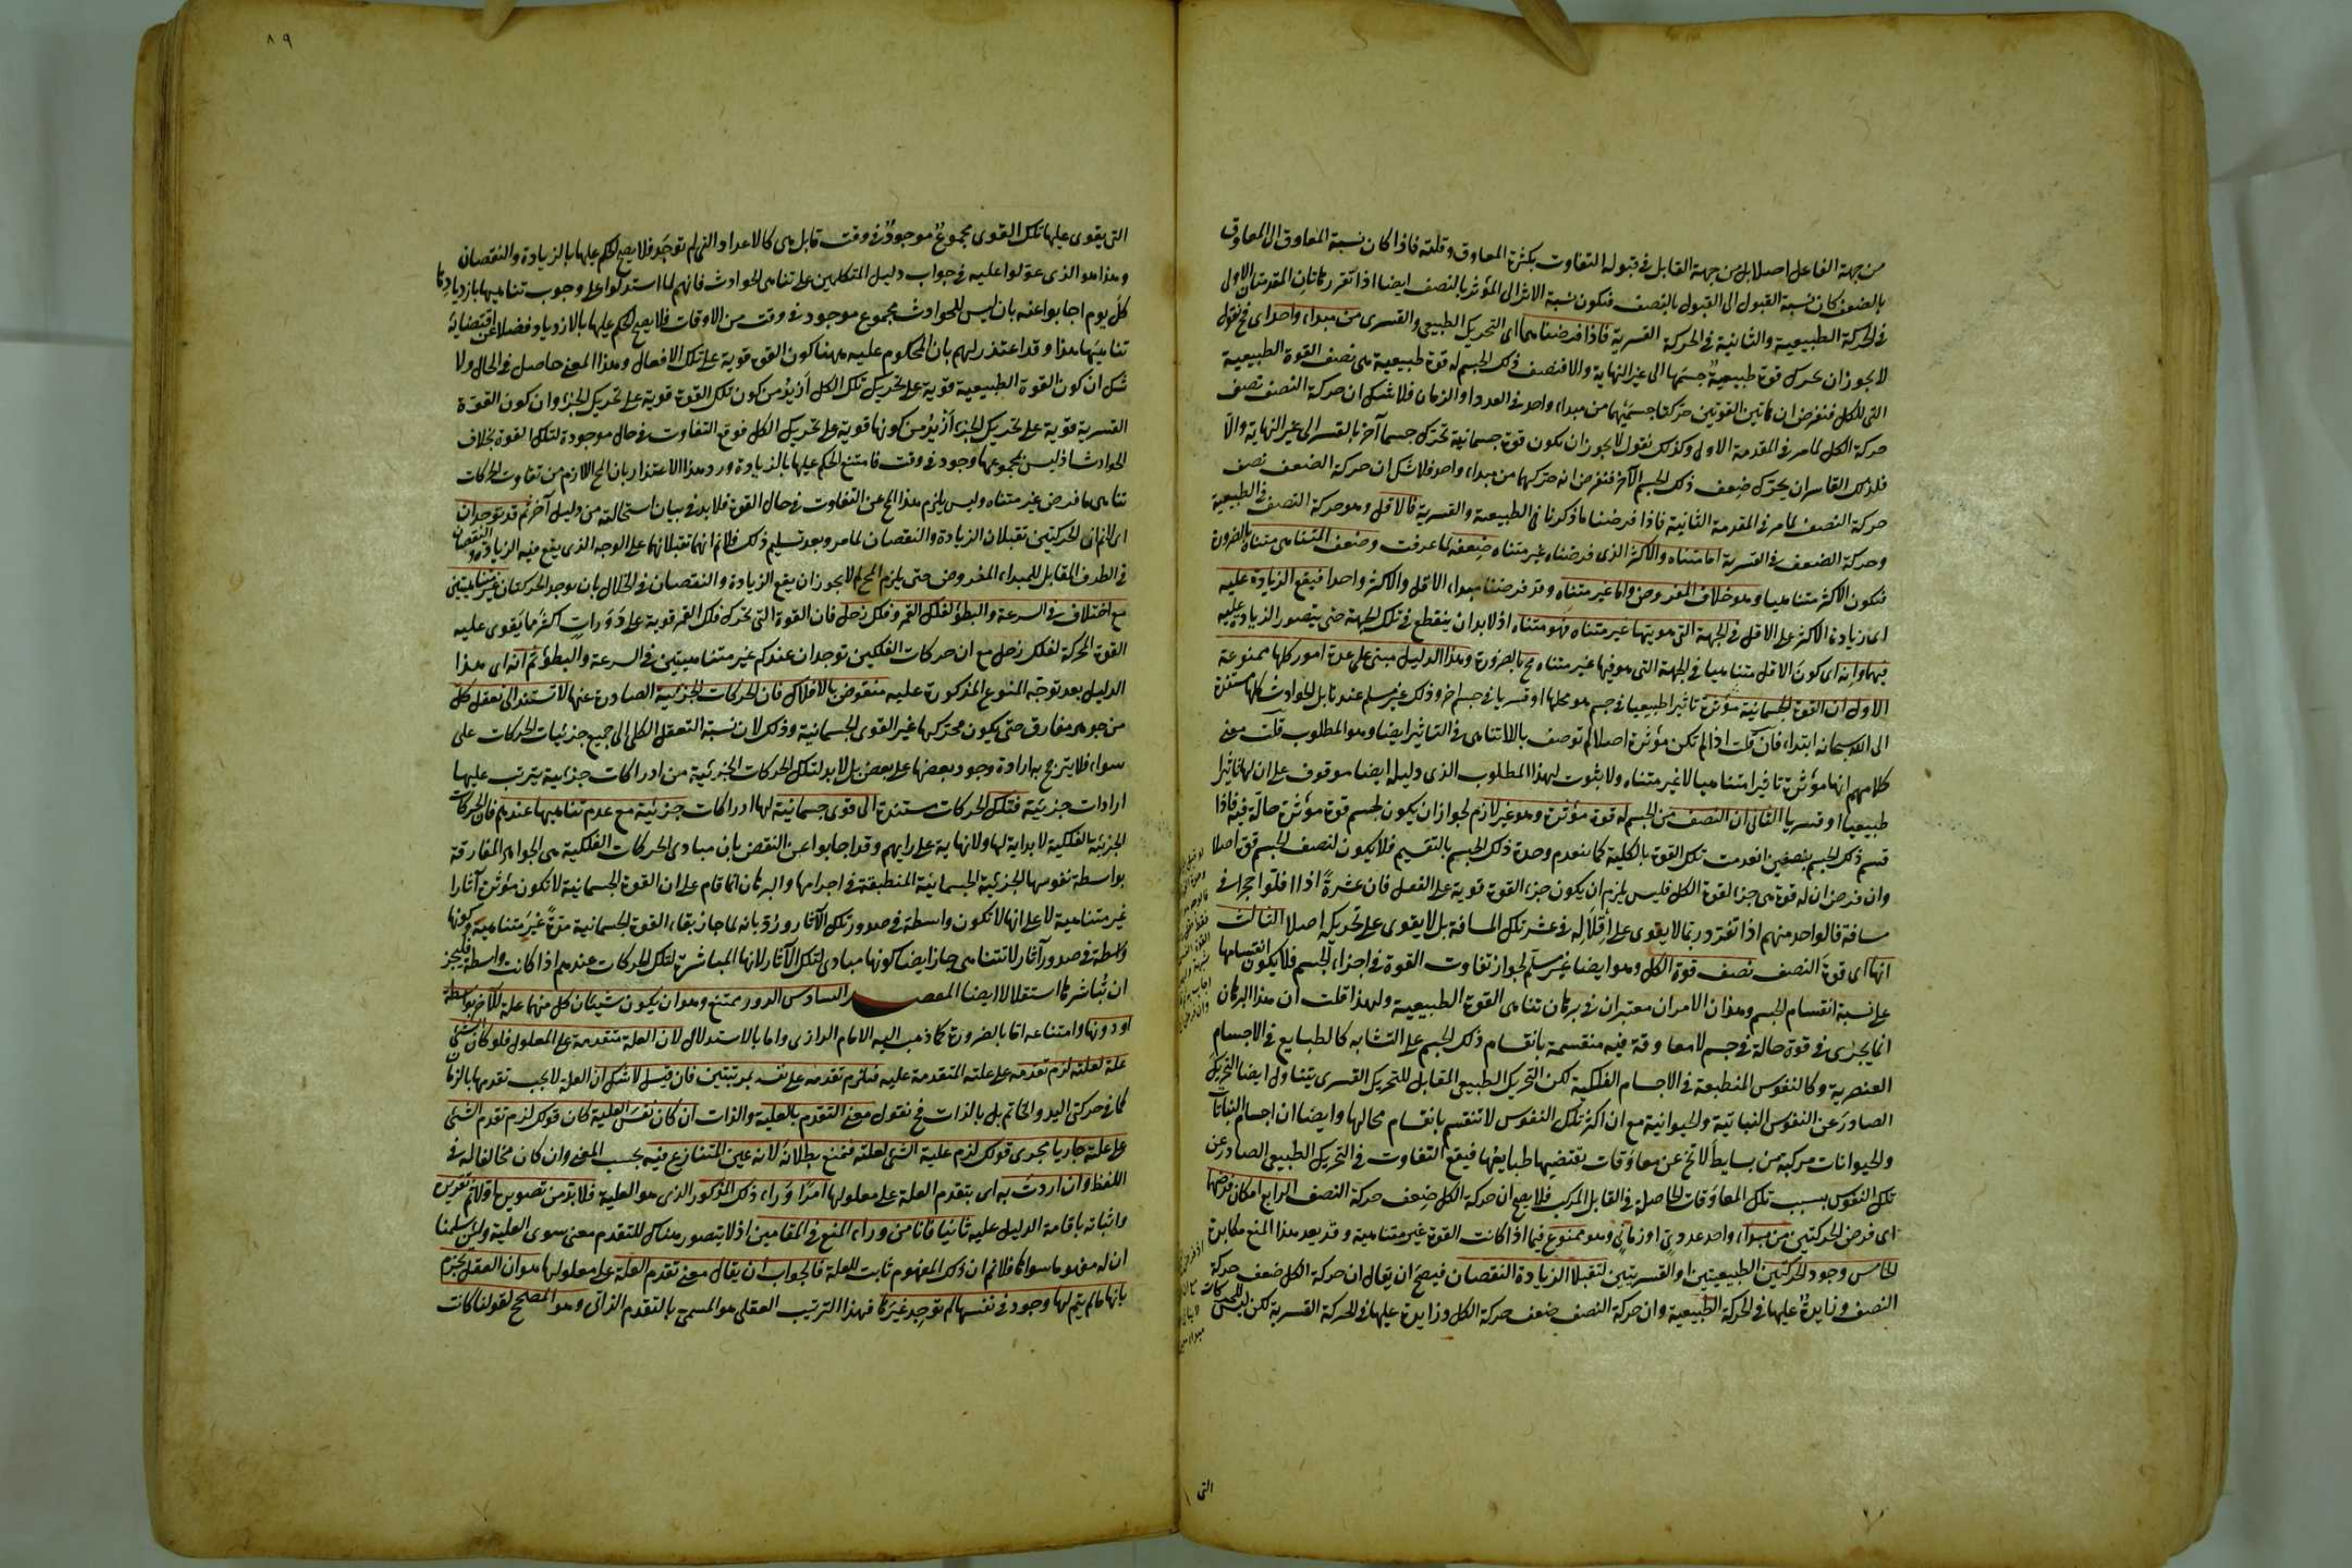 من جهة الفاعل اصلا بل من جهة القابل فى قبوله التفاوت بكثرة المعاوق وقلته فاذا كان نسبة المعاوق الى المعاوق
بالضعف كان نسبة القبول الى القبول بالنصف فتكون نسبة الاثر الى المؤثر بالنصف ايضا اذا تقرر هاتان المقدمتان الاولى
فى الحركة الطبيعية والثانية فى الحركة القسرية فاذا فرضناهما اى التحريك الطبيعى والقسرى من مبداء واحد اى فنقول
لا يجوز ان يحرك قوة طبيعية جسمها الى غير النهاية والا فنصف ذلك الجسم له قوة طبيعية هى نصف القوة الطبيعية
التى للكل فنفرض ان هاتين القوتين حركتا جسميهما من مبداء واحد فى العدد او الزمان فلا شك ان حركة النصف نصف
حركة الكل لما مر فى المقدمة الاولى وكذلك نقول لا يجوز ان يكون قوة جسمانية تحرك جسما آخر بالقسر الى غير النهاية والا
فلذلك القاسر ان يحرك ضعف ذلك الجسم الآخر فنفرض انه حركهما من مبداء واحد فلا شك ان حركة الضعف نصف
حركة النصف لما مر فى المقدمة الثانية فاذا فرضنا ما ذكرنا فى الطبيعية والقسرية فالاقل وهو حركة النصف فى الطبيعية
وحركة الضعف فى القسرية اما متناه والاكثر الذى فرضناه غير متناه ضعفه لما عرفت وضعف المتناهى متناه بالضرورة
فيكون الاكثر متناهيا وهو خلاف المفروض واما غير متناه وقد فرضنا مبداء الاقل والاكثر واحدا فيقع الزيادة عليه
اى زيادة الاكثر على الاقل فى الجهة التى هو بها غير متناه فهو متناه اذ لا بد ان ينقطع فى تلك الجهة حتى يتصور الزيادة عليه
فيها وانه اى كون الاقل متناهيا فى الجهة التى هو فيها غير متناه مح بالضرورة وهذا الدليل مبنى على عدة امور كلها ممنوعة
الاول ان القوة الجسمانية مؤثرة تاثيرا طبيعيا فى جسم هو محلها او قسريا فى جسم اخر وذلك غير مسلم عندنا بل الحوادث كلها مستندة
الى الله سبحانه ابتداء فان قلت اذا لم تكن مؤثرة اصلا لم توصف باللاتناهى فى التاثير ايضا وهو المطلوب قلت معنى
كلامهم انها مؤثرة تاثيرا متناهيا لا غير متناه ولا ثبوت لهذا المطلوب الذى دليله ايضا موقوف على ان لها تاثيرا
طبيعيا او قسريا الثانى ان النصف من الجسم له قوة مؤثرة وهو غير لازم لجواز ان يكون لجسم قوة مؤثرة حالة فيه فاذا
قسم ذلك الجسم بنصفين انعدمت تلك القوة بالكلية كما ينعدم وحدة ذلك الجسم بالتقسيم فلا يكون لنصف الجسم قوة اصلا
وان فرض ان له قوة هى جزء لقوة الكل فليس يلزم ان يكون جزء القوة قوية على الفعل فان عشرة اذا اقلوا حجرا فى
مسافة فالواحد منهم اذا تفرد ربما لا يقوى على اقلاله فى عشر تلك المسافة بل لا يقوى على تحريكه اصلا الثالث
انها اى قوة النصف نصف قوة الكل وهو ايضا غير مسلم لجواز تفاوت القوة فى اجزاء الجسم فلا يكون انقسامها
على نسبة انقسام الجسم وهذان الامران معتبران فى برهان تناهى القوة الطبيعية ولهذا قلت ان هذا البرهان
انما يجرى فى قوة حالة فى جسم لا معاوقة فيه منقسمة بانقسام ذلك الجسم على التشابه كالطبايع فى الاجسام
العنصرية وكالنفوس المنطبعة فى الاجسام الفلكية لكن التحريك الطبيعى المقابل للتحريك القسرى يتناول ايضا التحريك
الصادر عن النفوس النباتية والحيوانية مع ان اكثر تلك النفوس لا تنقسم بانقسام محالها وايضا ان اجسام النباتات
والحيوانات مركبة من بسايط لا تخ عن معاوقات يقتضيها طبايعها فيقع التفاوت فى التحريك الطبيعى الصادر عن
تلك النفوس بسبب تلك المعاوقات الحاصلة فى القابل المركب فلا يصح ان حركة الكل ضعف حركة النصف الرابع امكان فرضها
اى فرض الحركتين من مبداء واحد عددى او زمانى وهو ممنوع فيما اذا كانت القوة غير متناهية وقد يعد هذا المنع مكابرة
الخامس وجود الحركتين الطبيعيتين او القسريتين لتقبلا الزيادة والنقصان فيصح ان يقال ان حركة الكل ضعف حركة
النصف وزايدة عليها فى الحركة الطبيعية وان حركة النصف ضعف حركة الكل وزايدة عليها فى الحركة القسرية لكن ليس للحركات
التى
٨٩
التى يقوى عليها تلك القوى مجموع موجود فى وقت قابل هى كالاعداد التى لم توجد فلا يصح الحكم عليها بالزيادة والنقصان
وهذا هو الذى عولوا عليه فى جواب دليل المتكلمين على تناهى الحوادث فانهم لما استدلوا على وجوب تناهيها بازديادها
كل يوم اجابوا عنه بان ليس للحوادث مجموع موجود فى وقت من الاوقات فلا يصح الحكم عليها بالازدياد فضلا عن اقتضائه
تناهيها هذا وقد اعتذر لهم بان المحكوم عليه ههنا كون القوة قوية على تلك الافعال وهذا المعنى حاصل فى الحال ولا
شك ان كون القوة الطبيعية قوية على تحريك تلك الكل ازيد من كون تلك القوة قوية على تحريك الجزء وان كون القوة
القسرية قوية على تحريك الجزء ازيد من كونها قوية على تحريك الكل فوقع التفاوت فى حال موجودة لتلك القوة بخلاف
الحوادث اذ ليس لمجموعها وجود فى وقت فامتنع الحكم عليها بالزيادة ورد هذا الاعتذار بان المح اللازم من تفاوت الحركات
تناهى ما فرض غير متناه وليس يلزم هذا المح عن التفاوت فى حال القوة فلا بد فى بيان استحالته من دليل آخر ثم قد توجدان
اى لانم ان الحركتين تقبلان الزيادة والنقصان لما مر وبعد تسليم ذلك فلانم انهما تقبلانهما على الوجه الذى يقع فيه الزيادة والنقصان
فى الطرف المقابل للمبداء المفروض حتى يلزم المح لم لا يجوز ان يقع الزيادة والنقصان فى الخلال بان يوجد الحركتان غير متناهيتين
مع اختلاف فى السرعة والبطؤ لفلك القمر وفلك زحل فان القوة التى تحرك فلك القمر قوية على دورات اكثر مما يقوى عليه
القوة المحركة لفلك زحل مع ان حركات الفلكين توجدان عندكم غير متناهيتين فى السرعة والبطؤ ثم انه اى هذا
الدليل بعد توجه المنوع المذكورة عليه منقوض بالافلاك فان الحركات الجزئية الصادرة عنها لا تستند الى تعقل كلى
من جوهر مفارق حتى يكون محركها غير القوى الجسمانية وذلك لان نسبة التعقل الكلى الى جميع جزئيات الحركات على
سواء فلا يترجح به ارادة وجود بعضها على بعض بل لا بد لتلك الحركات الجزئية من ادراكات جزئية يترتب عليها
ارادات جزئية فتلك الحركات مستندة الى قوى جسمانية لها ادراكات جزئية مع عدم تناهيها عندهم فان الحركات
الجزئية الفلكية لا بداية لها ولا نهاية على رايهم وقد اجابوا عن النقض بان مبادى الحركات الفلكية هى الجواهر المفارقة
بواسطة نفوسها الجزئية الجسمانية المنطبقة فى اجرامها والبرهان انما قام على ان القوة الجسمانية لا تكون مؤثرة آثارا
غير متناهية لا على انها لا تكون واسطة فى صدور تلك الآثار ورد بانه لما جاز بقاء القوة الجسمانية مدة غير متناهية وكونها
واسطة فى صدور آثار لا تتناهى جاز ايضا كونها مبادى لتلك الآثار لانها المباشرة لتلك الحركات عندهم اذا كانت واسطة فليجز
ان تباشرها استقلالا ايضا المقصد السادس الدور ممتنع وهو ان يكون شيئان كل منهما علة للآخر بواسطة
او دونها وامتناعه اما بالضرورة كما ذهب اليه الامام الرازى واما بالاستدلال لان العلة متقدمة على المعلول فلو كان الشئ
علة لعلته لزم تقدمه على علته المتقدمة عليه فيلزم تقدمه على نفسه بمرتبتين فان قيل لا شك ان العلة لا يجب تقدمها بالزمان
كما فى حركتى اليد والخاتم بل بالذات فح نقول معنى التقدم بالعلية والذات ان كان نفس العلية كان قولك لزم تقدم الشئ
على علته جاريا مجرى قولك لزم علية الشئ لعلته فيمنع بطلانه لانه عين المتنازع فيه بحسب المعنى وان كان مخالفا له فى
اللفظ وان اردت به اى بتقدم العلة على معلولها امرا وراء ذلك المذكور الذى هو العلية فلا بد من تصويره اولا ثم تقريره
واثباته باقامة الدليل عليه ثانيا فانا من وراء المنع فى المقامين اذ لا يتصور هناك للتقدم معنى سوى العلية ولئن سلمنا
ان له مفهوما سواها فلانم ان ذلك المفهوم ثابت للعلة فالجواب ان يقال معنى تقدم العلة على معلولها هو ان العقل يجزم
بانها ما لم يتم لها وجود فى نفسها لم توجد غيرها فهذا الترتيب العقلى هو المسمى بالتقدم الذاتى وهو المصحح لقولنا كانت